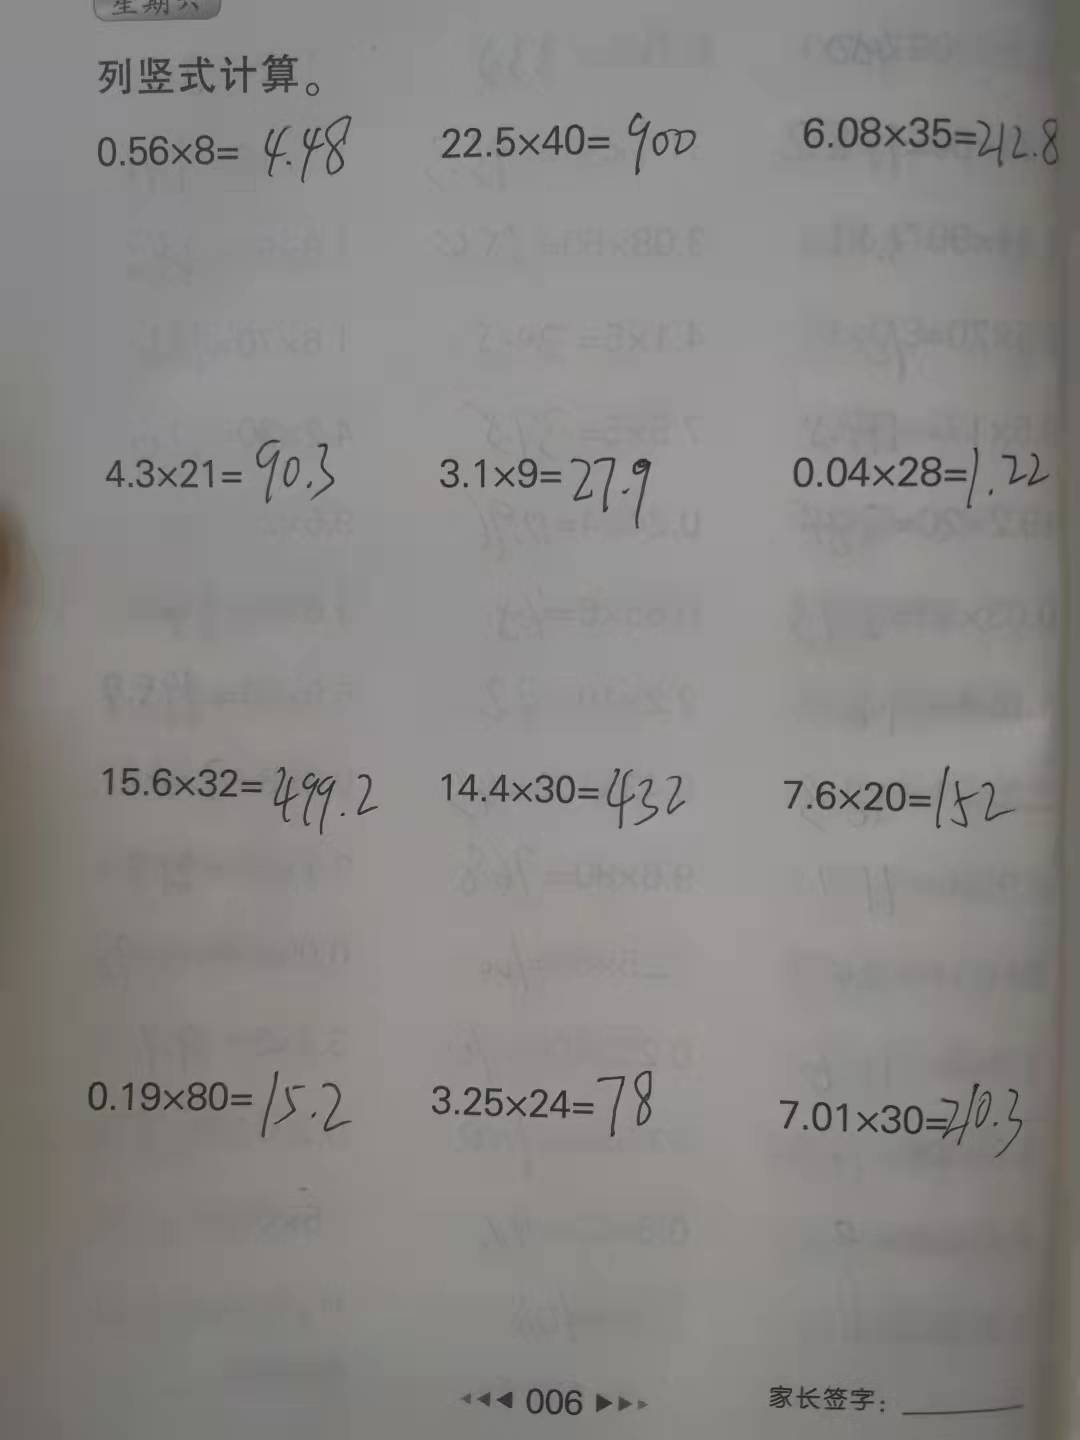 星期六
列竖式计算。
0.56×8= 4.48 22.5×40= 900 6.08×35=212.8
4.3×21= 90.3 3.1×9= 27.9 0.04×28=1.22
15.6×32= 499.2 14.4×30= 432 7.6×20=152
0.19×80= 15.2 3.25×24= 78 7.01×30=210.3
006
家长签字：